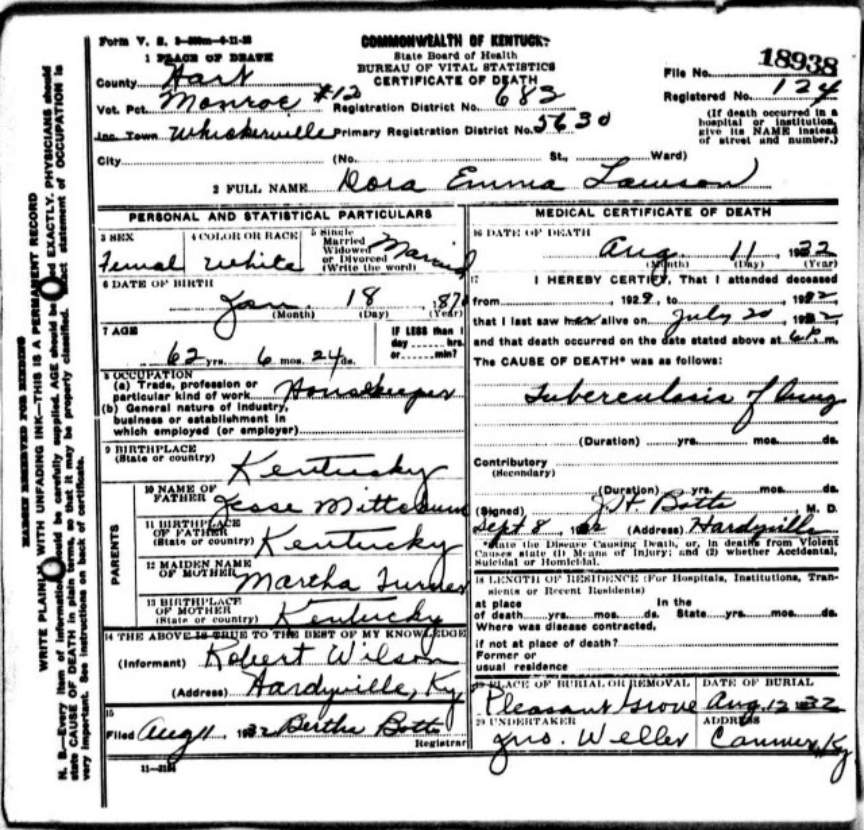 Form V. S. 4-11-32
COMMONWEALTH OF KENTUCKY
State Board of Health
BUREAU OF VITAL STATISTICS
CERTIFICATE OF DEATH
1 PLACE OF DEATH
County Hart
Vot. Pct. Monroe #12 Registration District No. 682
Inc. Town Whickerville Primary Registration District No. 5630
City (No. St., Ward)
File No. 18938
Registered No. 124
(If death occurred in a
hospital or institution,
give its NAME instead
of street and number.)
2 FULL NAME Dora Emma Lawson
PERSONAL AND STATISTICAL PARTICULARS
3 SEX
Femal
4 COLOR OR RACE
White
5 Single
Married
Widowed
or Divorced
(Write the word)
6 DATE OF BIRTH
Jan. 18 , 870
(Month) (Day) (Year)
7 AGE
62 yrs. 6 mos. 24 ds.
IF LESS than 1
day hrs.
or min?
8 OCCUPATION
(a) Trade, profession or
particular kind of work Housekeeper
(b) General nature of industry,
business or establishment in
which employed (or employer)
9 BIRTHPLACE
(State or country) Kentucky
PARENTS
10 NAME OF
FATHER Jesse
11 BIRTHPLACE
OF FATHER
(State or country) Kentucky
12 MAIDEN NAME
OF MOTHER Martha Turner
13 BIRTHPLACE
OF MOTHER
(State or country) Kentucky
14 THE ABOVE IS TRUE TO THE BEST OF MY KNOWLEDGE
(Informant) Robert Wilson
(Address) Hardyville, Ky
15
Filed Aug 11, 1932 Bertha Botts
Registrar
11-3184
MEDICAL CERTIFICATE OF DEATH
16 DATE OF DEATH
Aug. 11, 1932
(Month) (Day) (Year)
17 I HEREBY CERTIFY, That I attended deceased
from , 1929, to , 1932
that I last saw her alive on July 20, 1932
and that death occurred on the date stated above at 6 P. m.
The CAUSE OF DEATH* was as follows:
Tuberculosis of lung
(Duration) yrs. mos. ds.
Contributory
(Secondary)
(Duration) yrs. mos. ds.
(Signed) J. H. Botts, M. D.
Sept 8, 1932 (Address) Hardyville
*State the Disease Causing Death, or, in deaths from Violent
Causes state (1) Means of Injury; and (2) whether Accidental,
Suicidal or Homicidal.
18 LENGTH OF RESIDENCE (For Hospitals, Institutions, Tran-
sients or Recent Residents)
at place In the
of death yrs. mos. ds. State yrs. mos. ds.
Where was disease contracted,
if not at place of death?
Former or
usual residence
19 PLACE OF BURIAL OR REMOVAL
Pleasant Grove
DATE OF BURIAL
Aug. 12 1932
20 UNDERTAKER
Jno. Weller
ADDRESS
Canmer, Ky
MARGIN RESERVED FOR BINDING
WRITE PLAINLY WITH UNFADING INK—THIS IS A PERMANENT RECORD
N. B.—Every item of information should be carefully supplied. AGE should be stated EXACTLY. PHYSICIANS should
state CAUSE OF DEATH in plain terms, so that it may be properly classified. Exact statement of OCCUPATION is
very important. See instructions on back of certificate.